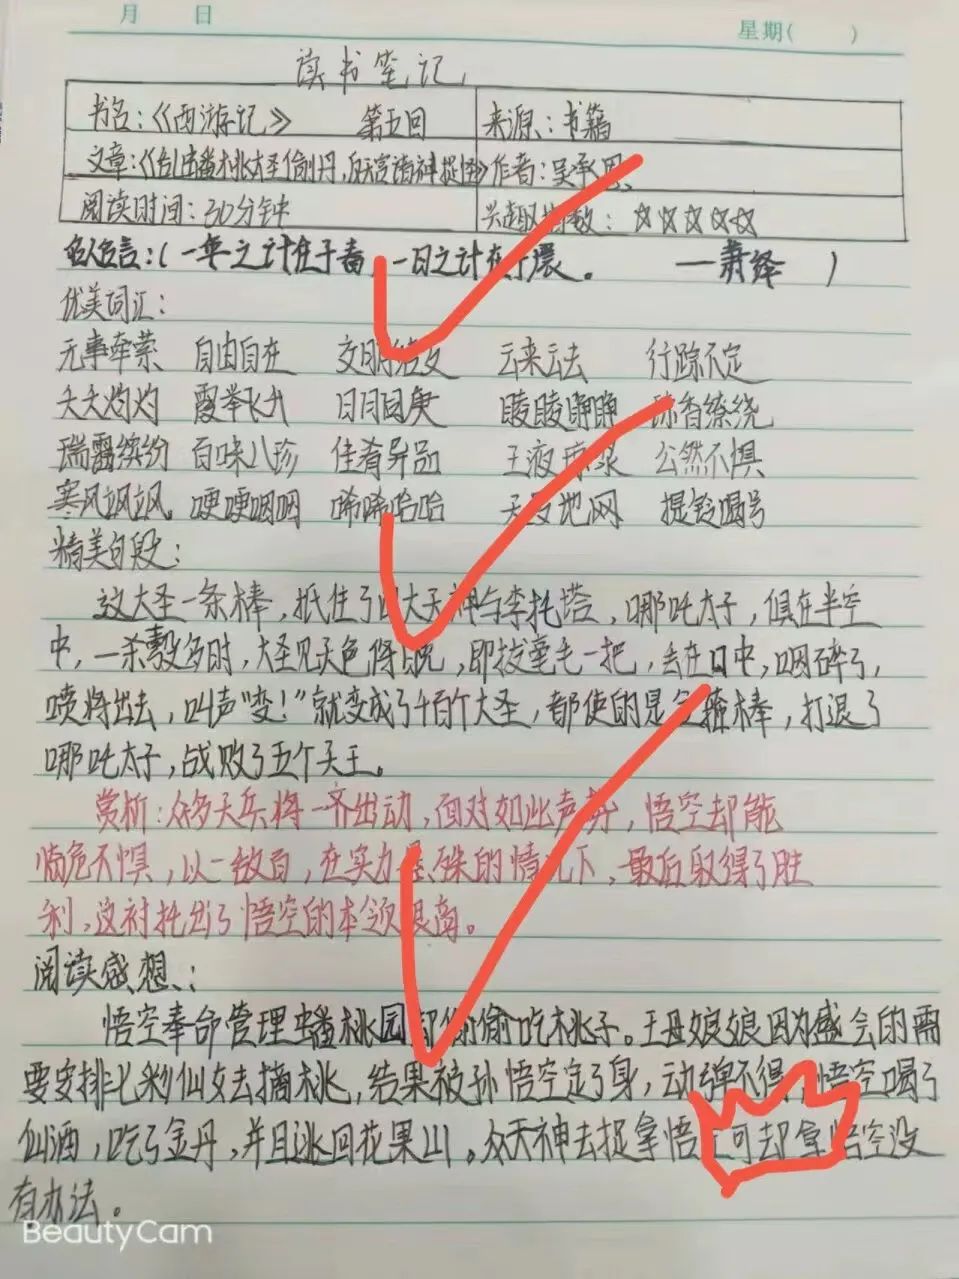 月 日
星期( )
读书笔记
书名:《西游记》 第五回 来源:书籍
文章:《乱蟠桃大圣偷丹,反天宫诸神捉怪》 作者:吴承恩
阅读时间:30分钟 兴趣指数:☆☆☆☆☆
名人名言:(一年之计在于春,一日之计在于晨。 ——萧绎 )
优美词汇:
无事牵萦 自由自在 交朋结友 云来云去 行踪不定
夭夭灼灼 霞举飞升 瞪瞪睁睁 缭绕
瑞霭缤纷 百味八珍 佳肴异品 玉液琼浆 公然不惧
寒风飒飒 哽哽咽咽 唏唏哈哈 天罗地网 提铃喝号
精美句段:
这大圣一条棒,抵住了四大天神与李托塔,哪吒太子,俱在半空
中,一杀多时,大圣见天色将晚,即拔毫毛一把,丢在口中,咽碎了,
喷将出去,叫声"变!"就变成了千百个大圣,都使的是金箍棒,打退了
哪吒太子,战败了五个天王。
赏析:众多天兵将一齐出动,面对如此声势,悟空却能
临危不惧,以一敌百,在实力悬殊的情况下,最后取得了胜
利,这衬托出了悟空的本领很高。
阅读感想:
悟空奉命管理蟠桃园却偷偷吃桃子。王母娘娘因为盛会的需
要安排七彩仙女去摘桃,结果被孙悟空定了身,动弹不得,悟空喝了
仙酒,吃了金丹,并且逃回花果山。众天神去捉拿悟空可却拿悟空没
有办法。
BeautyCam